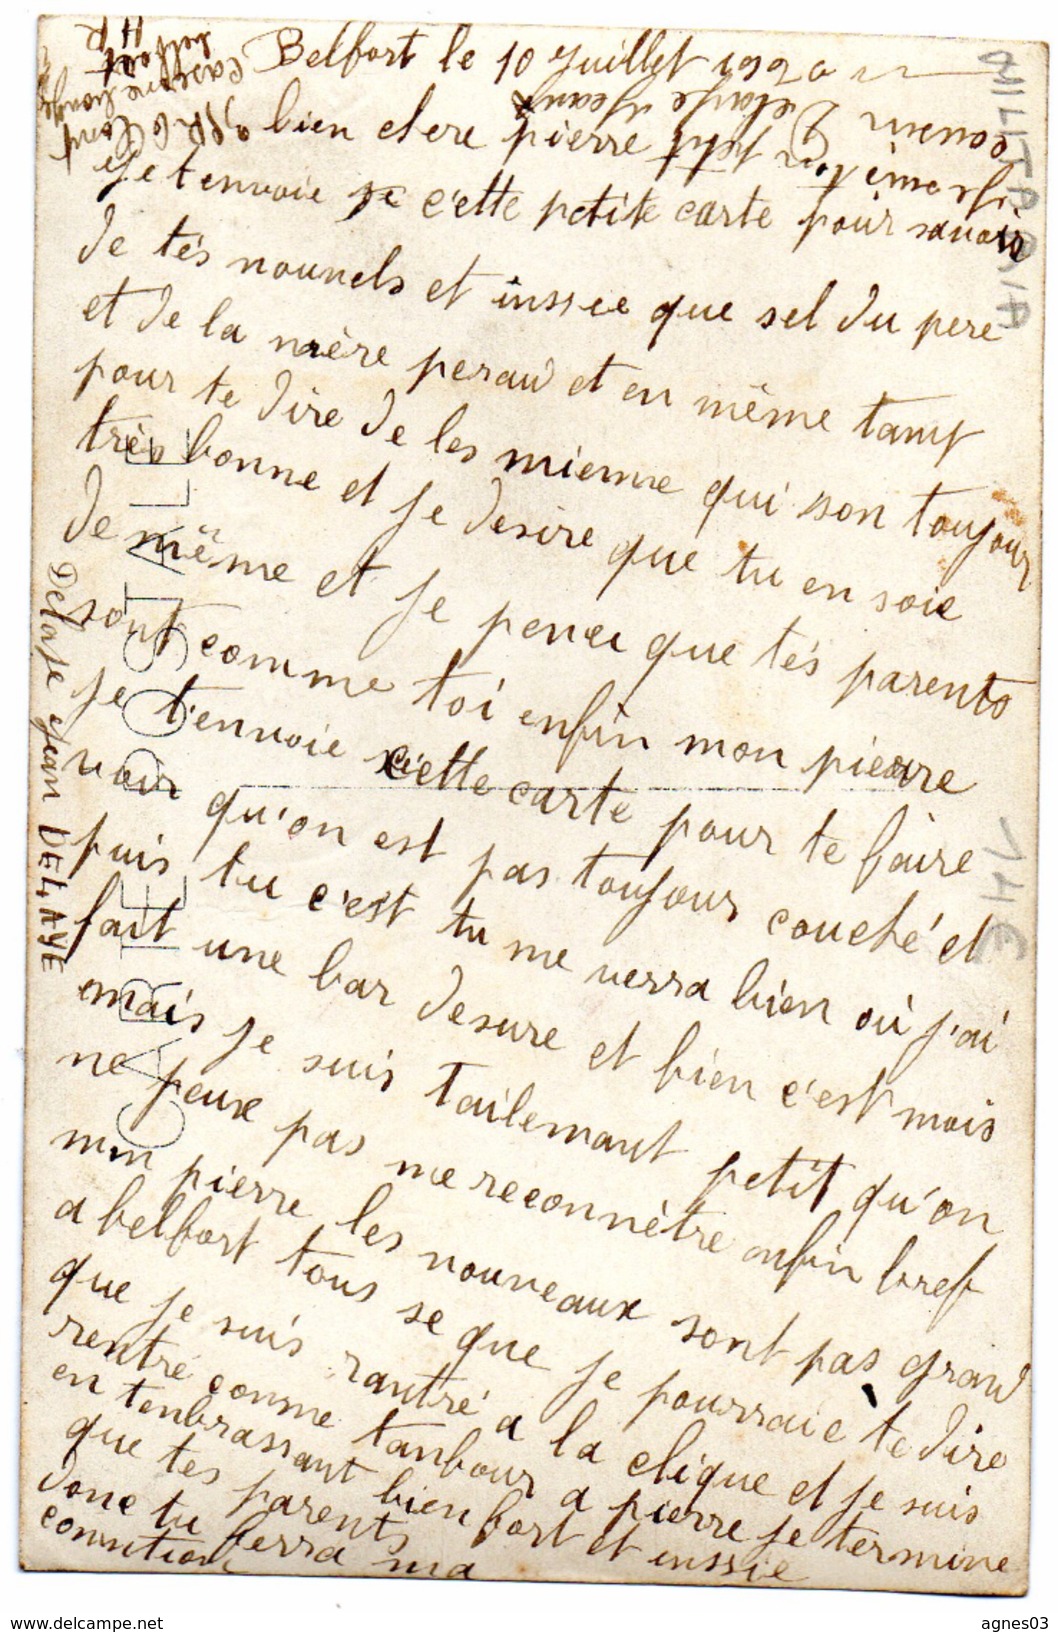 Belfort le 10 Juillet 1920
bien chere pierre
Je t envoie cette petite carte pour savoir
de tés nounels et inssee que sel du pere
et de la mère peraud et en même tamp
pour te dire de les mienne qui son toujour
très bonne et je desire que tu en soie
de même et je pencer que tés parents
sont comme toi enfin mon pierre
je t'envoie cette carte pour te faire
voir qu'on est pas toujour couché et
puis tu c'est tu me verra bien où j'ai
fait une bar desure et bien c'est mois
mais je suis tailemant petit qu'on
ne peux pas me reconnètre enfin bref
mon pierre les nouveaux sont pas grand
a belfort tous se que je pourraie te dire
que je suis rantré a la clique et je suis
rentré comme tanbour a pierre je termine
en tenbrassant bien fort et inssie
que tes parents
donc tu ferra ma
comition
Delaje jean DELAYE
cousin Delaije Jean
caserne
belfort
H R
MILITARIA
14€
CARTE POSTALE
www.delcampe.net
agnes03